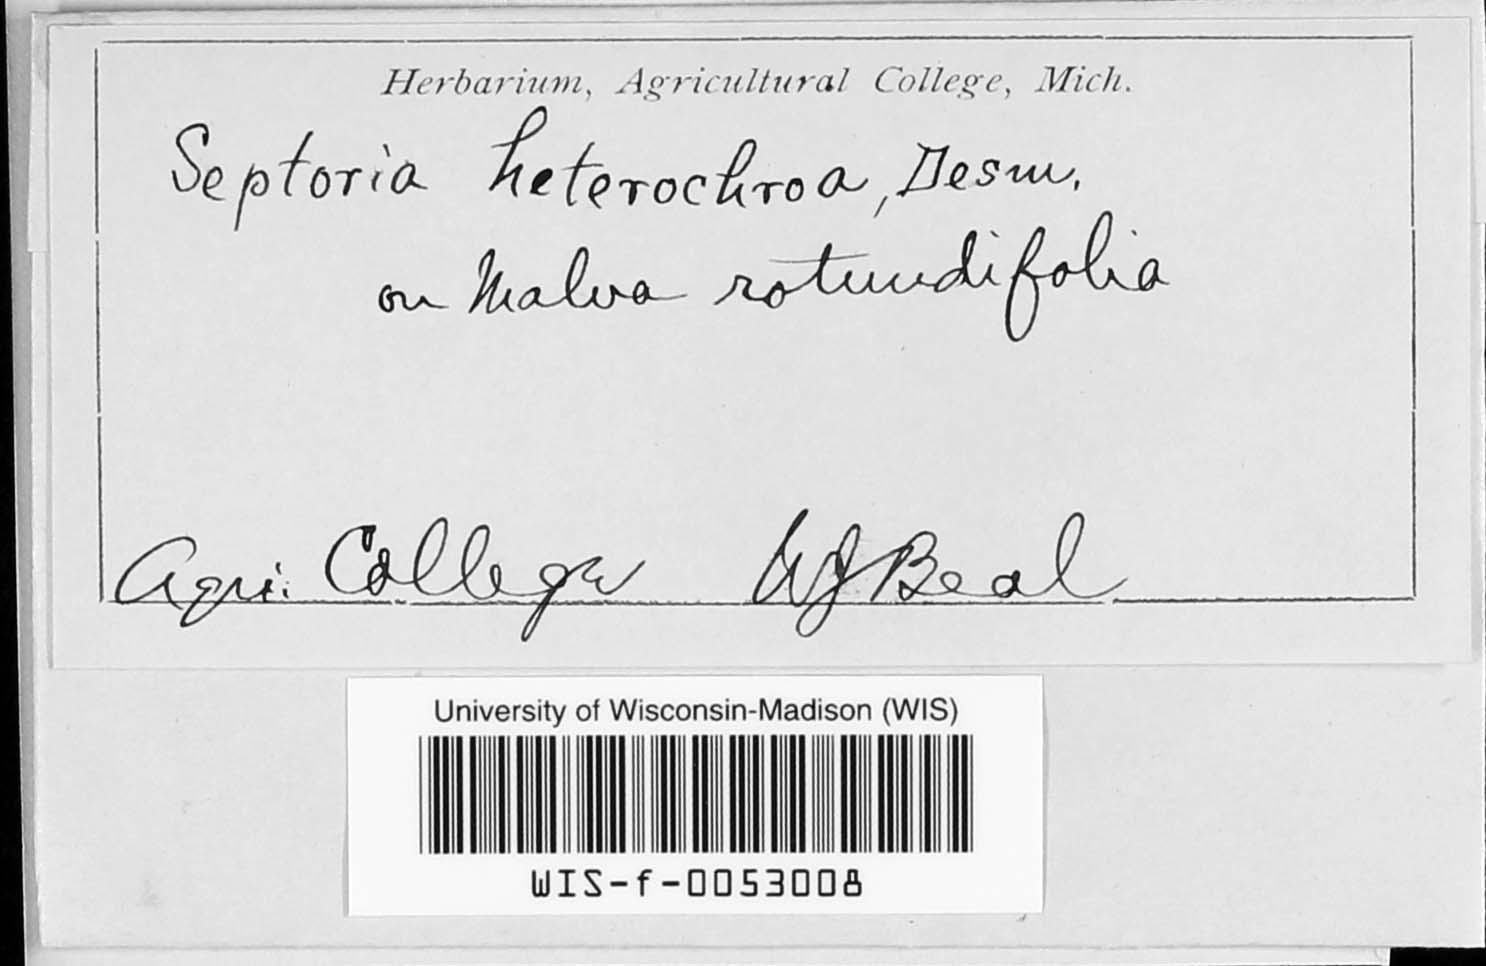 Herbarium, Agricultural College, Mich.
Septoria heterochroa, Desm.
on Malva rotundifolia
Agri. College WJ Beal
University of Wisconsin-Madison (WIS)
WIS-f-0053008